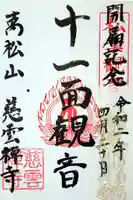 開扉記念
令和一年
四月二十日
十一面観音
高松山
慈雲禅寺
慈雲